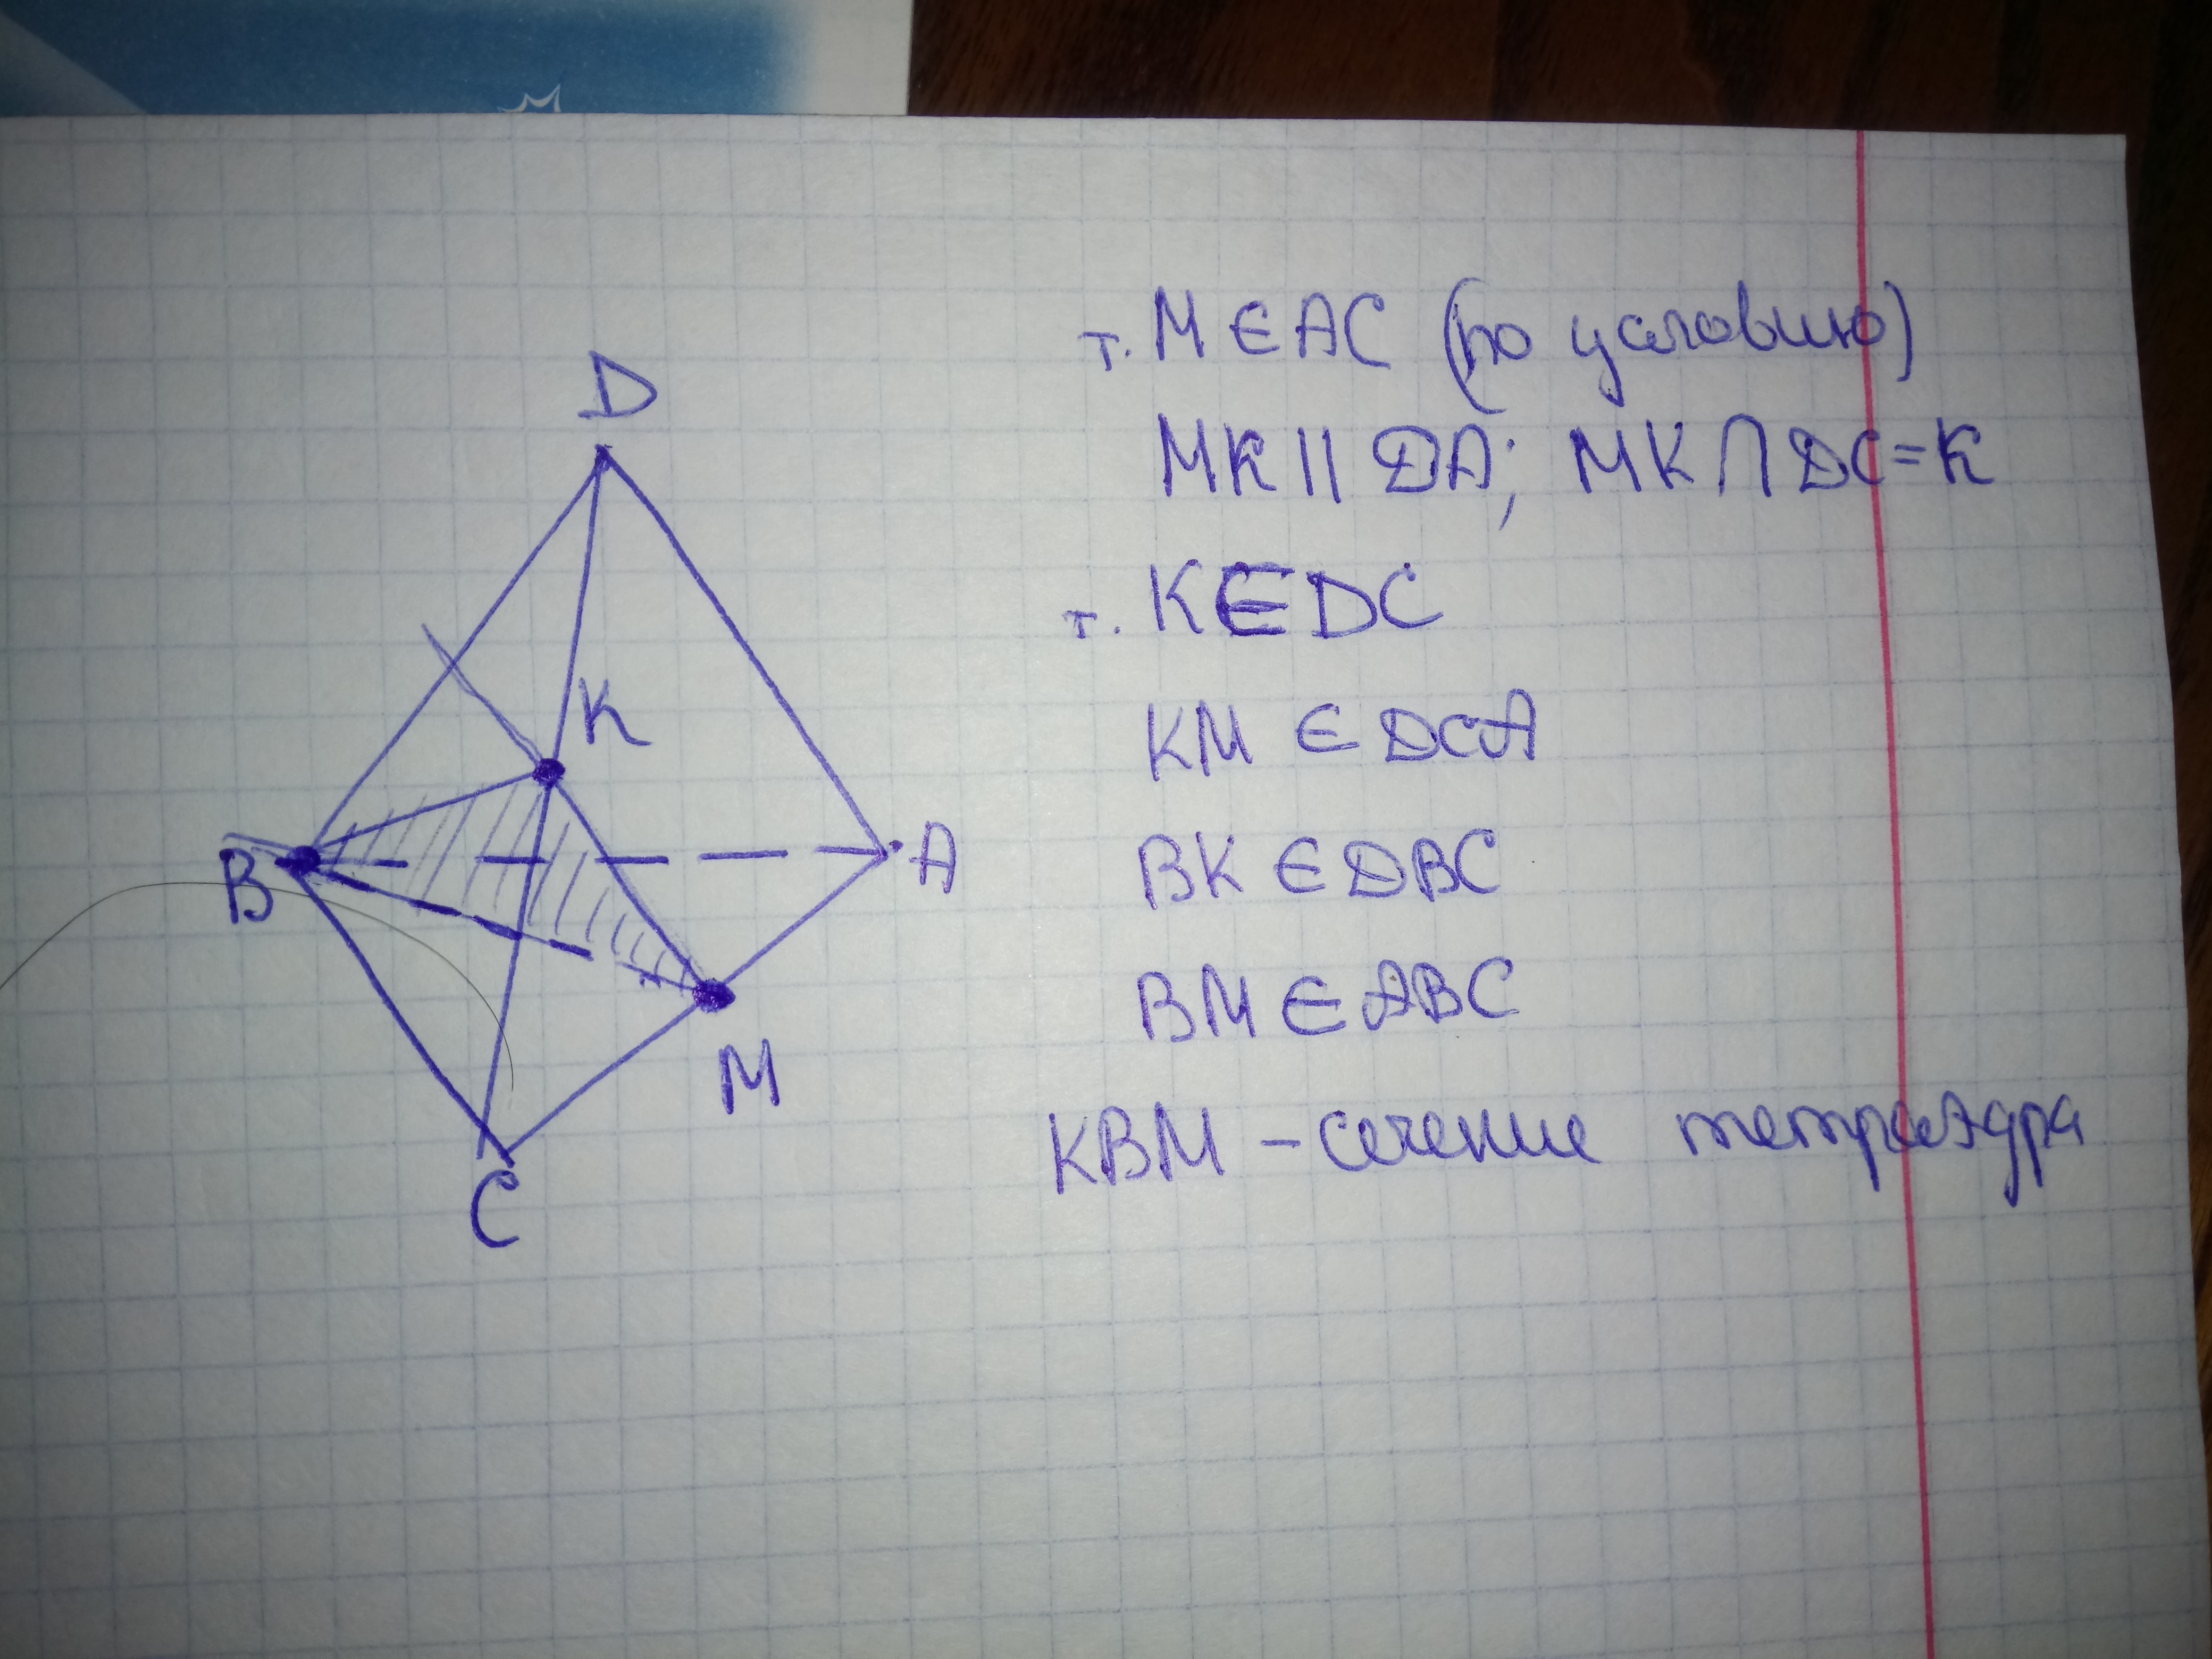 D
K
B
A
M
C
т. M ∈ AC (по условию)
MK || DA; MK ∩ DC = K
т. K ∈ DC
KM ∈ DCA
BK ∈ DBC
BM ∈ ABC
KBM – сечение тетраэдра